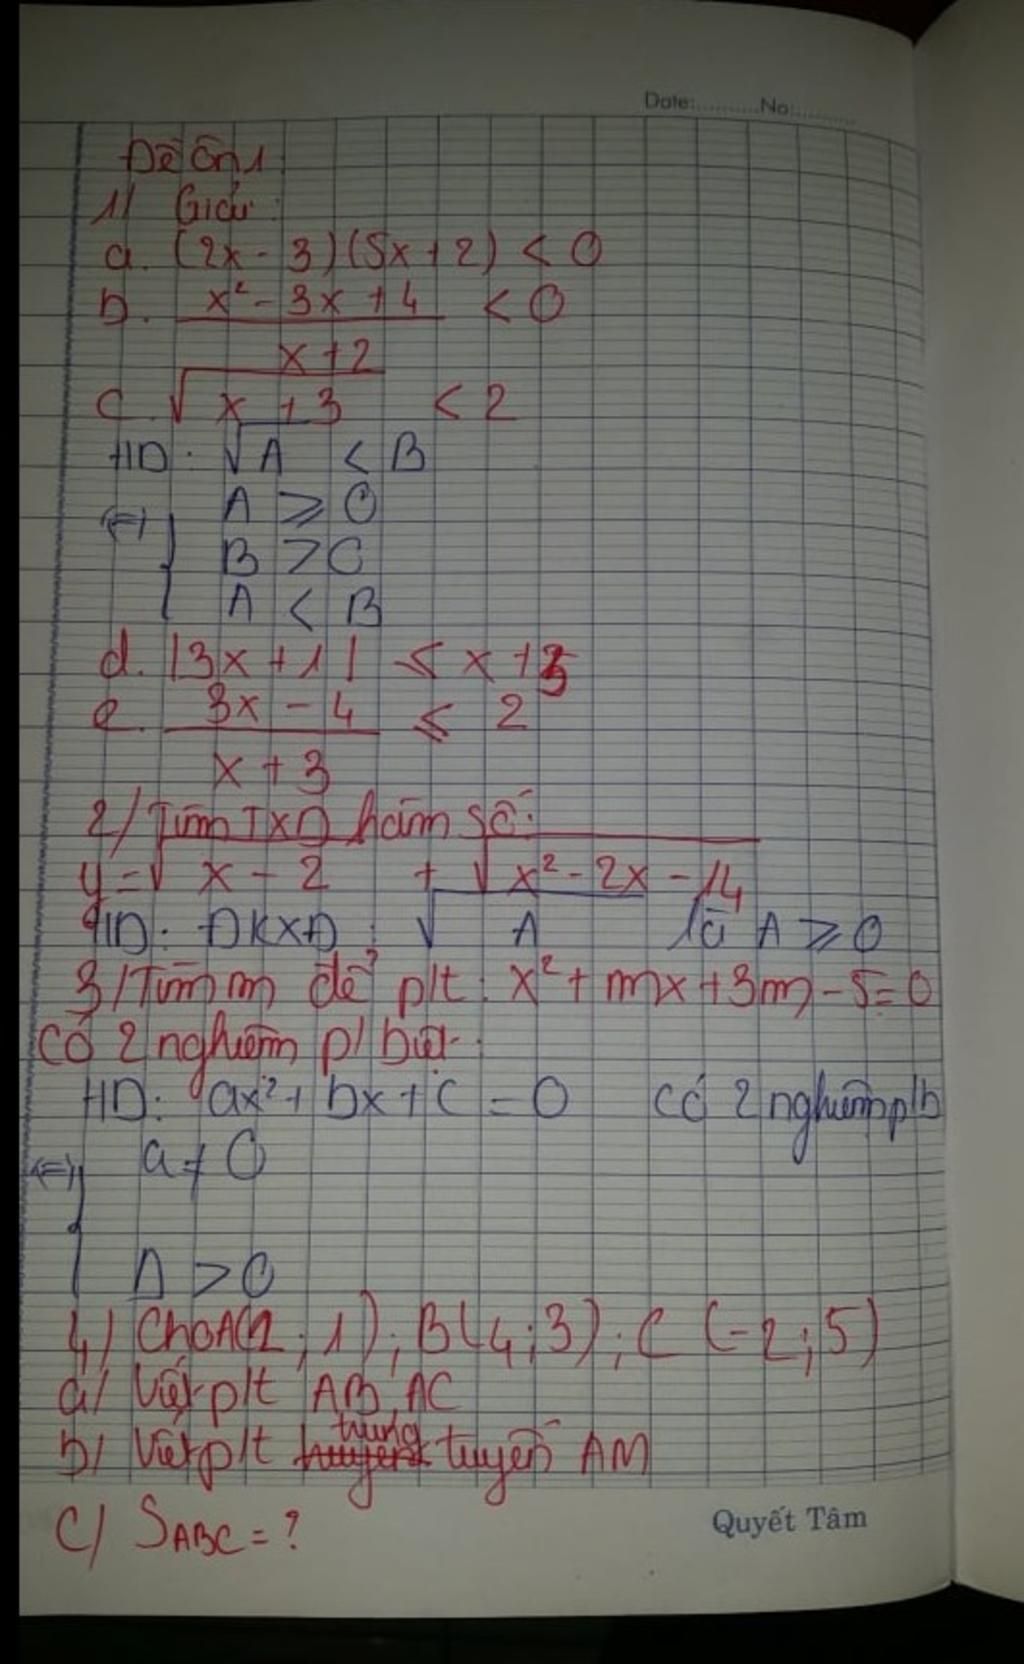 Date:..........No:..........
Đề ôn 1
1/ Giải:
a. (2x - 3)(5x + 2) < 0
b. x² - 3x + 4 < 0
x + 2
c. √x + 3 < 2
HD: √A < B
A ≥ 0
(=) { B > 0
A < B
d. |3x + 1| ≤ x + 3
e. 3x - 4 ≤ 2
x + 3
2/ Tìm TXĐ hàm số:
y = √x - 2 + √x² - 2x - 14
HD: ĐKXĐ: √A là A ≥ 0
3/ Tìm m để p/t: x² + mx + 3m - 5 = 0
Có 2 nghiệm p/ biệt.
HD: ax² + bx + c = 0 có 2 nghiệm p/b
(=) { a ≠ 0
Δ > 0
4/ Cho A(2; 1), B(4; 3); C(-2; 5)
a/ Viết p/t AB, AC
b/ Viết p/t trung tuyến AM
c/ SABC = ?
Quyết Tâm